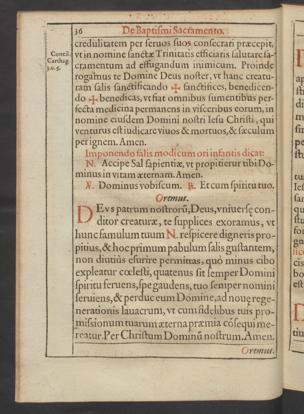 36 De Baptismi Sacramento.
Concil.
Carthag.
3.c.5.
credulitatem per seruos suos consecrari præcepit,
vt in nomine sanctæ Trinitatis efficiaris salutare sa-
cramentum ad effugandum inimicum. Proinde
rogamus te Domine Deus noster, vt hanc creatu-
ram salis sanctificando ✠ sanctifices, benedicen-
do ✠ benedicas, vt fiat omnibus sumentibus per-
fecta medicina permanens in visceribus eorum, in
nomine eiusdem Domini nostri Iesu Christi, qui
venturus est iudicare viuos & mortuos, & sæculum
per ignem. Amen.
Imponendo salis modicum ori infantis dicat:
N. Accipe Sal sapientiæ, vt propitietur tibi Do-
minus in vitam æternam. Amen.
℣. Dominus vobiscum. ℟. Et cum spiritu tuo.
Oremus.
DEvs patrum nostrorū, Deus, vniuersę con-
ditor creaturæ, te supplices exoramus, vt
hunc famulum tuum N. respicere digneris pro-
pitius, & hoc primum pabulum salis gustantem,
non diutiùs esurire permittas, quò minus cibo
expleatur cœlesti, quatenus sit semper Domini
spiritu feruens, spe gaudens, tuo semper nomini
seruiens, & perduc eum Domine, ad nouę rege-
nerationis lauacrum, vt cum fidelibus tuis pro-
missionum tuarum æterna præmia cōsequi me-
reatur. Per Christum Dominū nostrum. Amen.
Oremus.